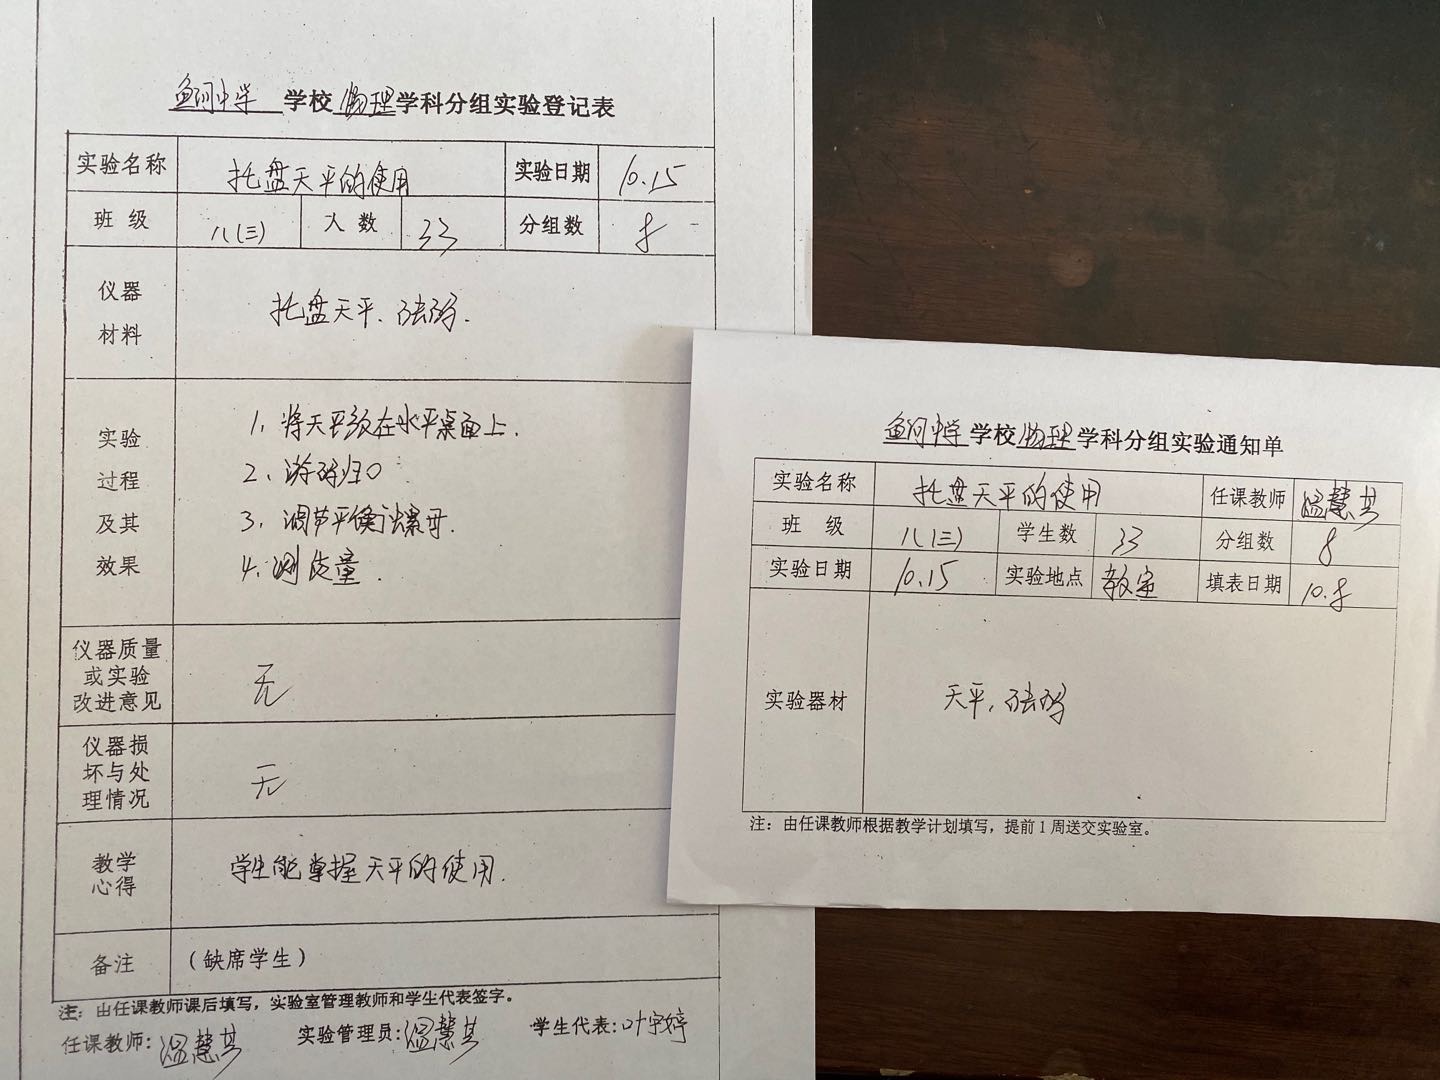 鱼河中学 学校 物理 学科分组实验登记表
实验名称 托盘天平的使用 实验日期 10.15
班 级 八(三) 人 数 33 分组数 8
仪器
材料
托盘天平、砝码.
实验
过程
及其
效果
1、将天平放在水平桌面上.
2、游码归0
3、调节平衡螺母.
4、测质量.
仪器质量
或实验
改进意见
无
仪器损
坏与处
理情况
无
教学
心得
学生能掌握天平的使用.
备注 (缺席学生)
注：由任课教师课后填写，实验室管理教师和学生代表签字。
任课教师:温慧芸 实验管理员:温慧芸 学生代表:叶宇婷
鱼河中学 学校 物理 学科分组实验通知单
实验名称 托盘天平的使用 任课教师 温慧芸
班 级 八(三) 学生数 33 分组数 8
实验日期 10.15 实验地点 教室 填表日期 10.8
实验器材 天平、砝码
注：由任课教师根据教学计划填写，提前1周送交实验室。